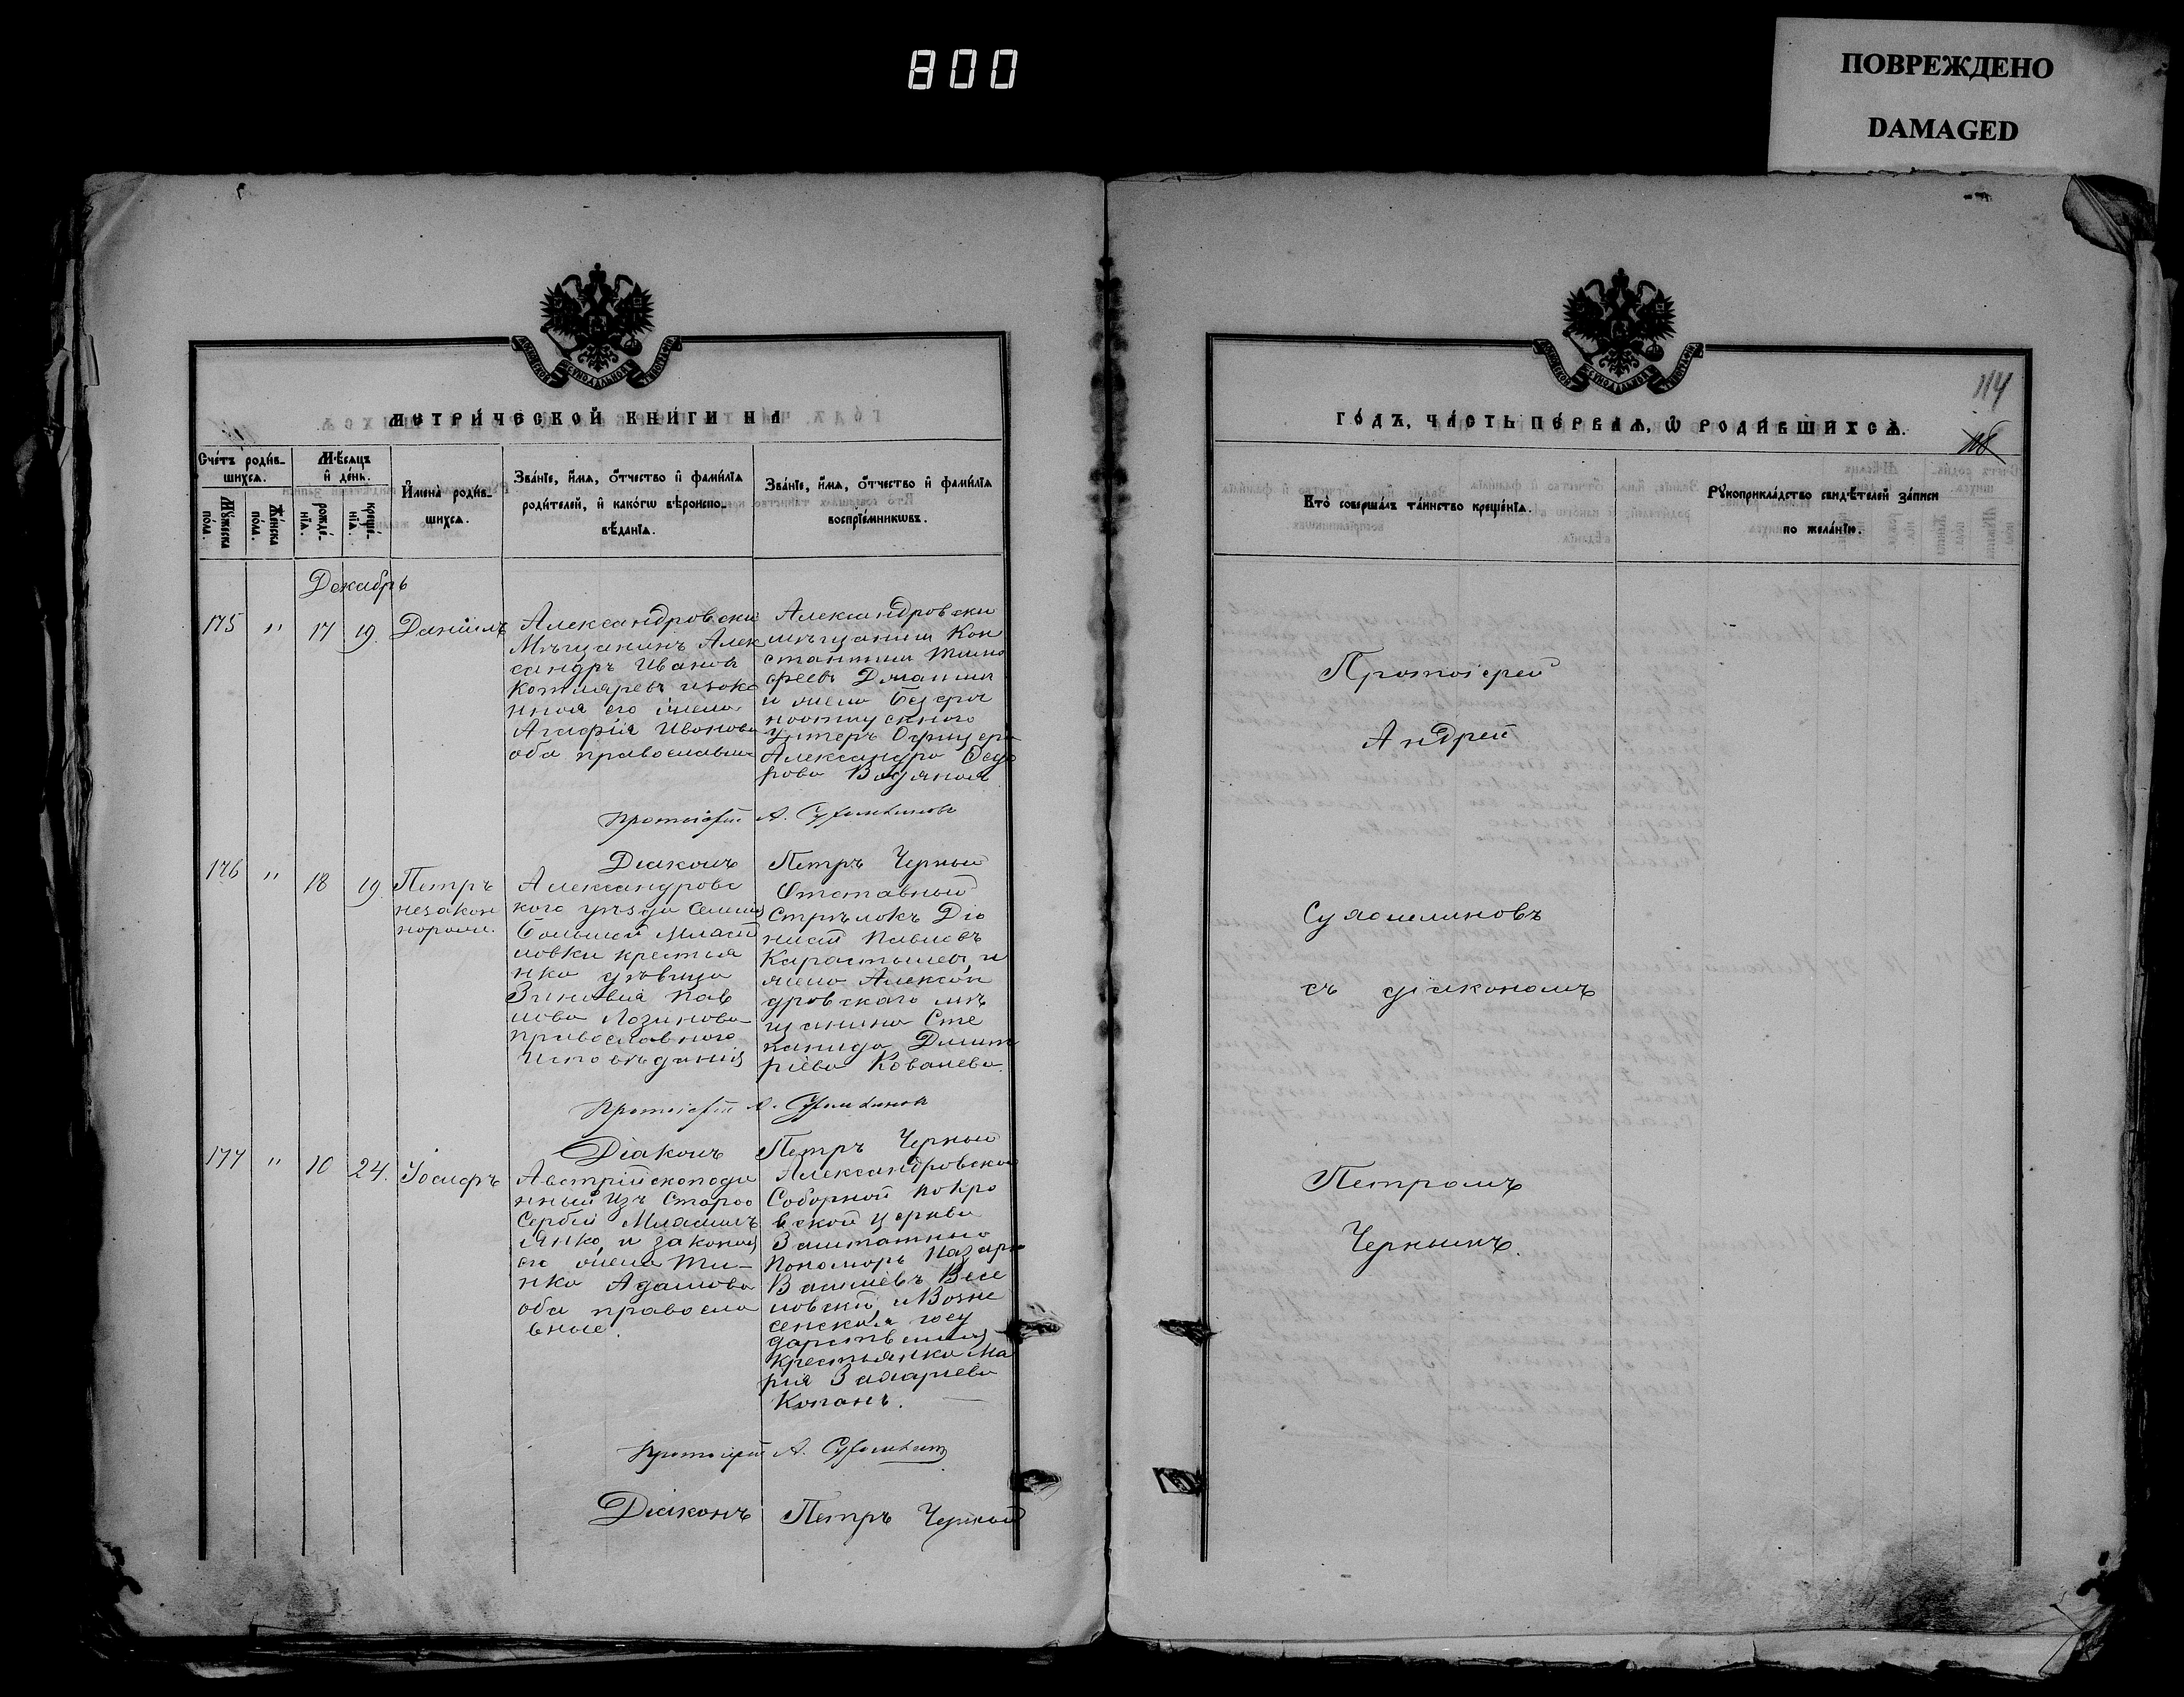 800
ПОВРЕЖДЕНО
DAMAGED
МЕТРИЧЕСКОЙ КНИГИ НА
Счетъ родив-
шихся.
Мужеска
пола.
Женска
пола.
Мѣсяцъ
и день.
рожде-
нія.
креще-
нія.
Имена родив-
шихся.
Званіе, имя, отчество и фамилія
родителей, и какогѡ вѣроиспо-
вѣданія.
Званіе, имя, отчество и фамилія
воспріемниковъ.
Декабрь
175 " 17 19. Даніилъ
Александровски
Мѣщанинъ Алек
сандръ Иванов
Котляревъ изако
нная его жена
Агафія Иванова
оба православны
Александровски
мѣщанин Кон
стантин Тимо
феевъ
и жена Безсроч
ноотпускного
Унтеръ Офицера
Александра Федо
рова Водяная
Протоіерей А.
Діаконъ Петръ Черный
176 " 18 19. Петръ
незакон
норожд.
Александровс
кого уѣзда Селенія
Большой Михай
ловки крестья
нка дѣвица
Зиновія Пав
лова Лозинова
православного
исповѣданія
Отставный
Стрѣлокъ Діо
нисій Павловъ
и
жена Алексан
дровского мѣ
щанина Сте
панида Дмит
ріева Ковалева.
Протоіерей А.
Діаконъ Петръ Черный
177 " 10 24. Іосифъ
Австрійскоподда
нный изъ Старой
Сербіи
Янко, и законная
его жена Ми-
лка Адамова
оба правосла
вные.
Александровской
Соборной Покро
вской церкви
Заштатный
Пономарь Назарій
Васильевъ Весе
ловскій, и Возне
сенская госу
дарственная
крестьянка Ма
рія Захаріева
Копань.
Протоіерей А.
Діаконъ Петръ Черный
ГОДЪ, ЧАСТЬ ПЕРВАЯ, Ѡ РОДИВШИХСЯ.
114
Кто совершалъ таинство крещенія.
Рукоприкладство свидѣтелей записи
по желанію.
Протоіерей
Андрей
съ діакономъ
Петромъ
Чернымъ.